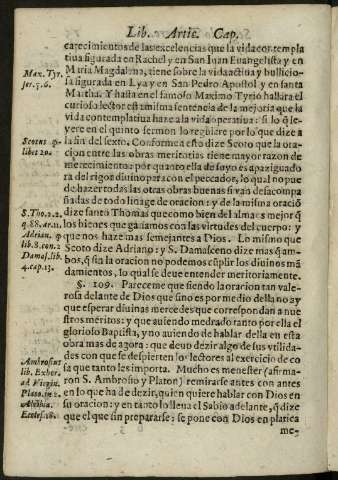 Lib. Artic. Cap.
carecimientos de las excelencias que la vida contempla
tiua figurada en Rachel y en San Iuan Euangelista y en
Maria Magdalena, tiene sobre la vida actiua y bullicio-
sa figurada en Lya y en San Pedro Apostol y en santa
Martha. Y hasta en el famoso Maximo Tyrio hallara el
curioso lector esta misma sentencia de la mejoria que la
vida contemplatiua haze a la vida operatiua: si lo q̃ le-
yere en el quinto sermon lo reguiere por lo que dize a
la fin del sexto. Conforme a esto dize Scoto que la ora
cion entre las obras meritorias tiene mayor razon de
merecimiento: por quanto ella de suyo es apaziguado
ra del rigor diuino para con el peccador, lo qual no pue
de hazer todas las otras obras buenas si van desacompa
ñadas de todo linage de oracion: y de la misma oració
dize santo Thomas que como bien del alma es mejor q̃
los bienes que ganamos con las virtudes del cuerpo: y
que nos haze mas semejantes a Dios. Lo mismo que
Scoto dize Adriano: y S. Damasceno dize mas q̃ am-
bos, q̃ sia la oracion no podemos cũplir los diuinos mã
damientos, lo qual se deue entender meritoriamente.
§. 109. Pareceme que siendo la oracion tan vale-
rosa delante de Dios que sino es por medio della no ay
que esperar diuinas mercedes que correspondan a nue
stros meritos: y que auiendo medrado tanto por ella el
glorioso Baptista, y no auiendo de hablar della en esta
obra mas de agora: que deuo dezir algo de sus vtilida-
des con que se despierten los lectores al exercicio de co
sa que tanto les importa. Mucho es menester (afirma-
ron S. Ambrosio y Platon) remirarse antes con antes
en lo que ha de dezir, quien quiere hablar con Dios en
su oracion: y en tanto lo lleua el Sabio adelante, q̃ dize
que el que sin prepararse se pone con Dios en platica
me-
Max. Tyr.
ser. 5. 6.
Scotus q̃
libet 20.
S. Tho. 2. 2.
q. 88. ar. 11.
Adrian. q̃
lib. 8. ron. 2
Damas. lib.
4. cap. 13.
Ambrosius
lib. Exhor.
ad Virgin.
Plato. in 2.
Alcibia.
Eccles. 18.